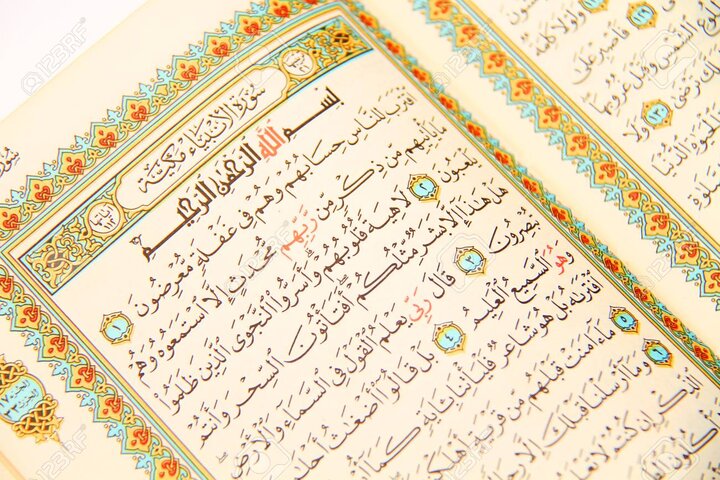 سُورَةُ الْأَنْبِيَاءِ مَكِّيَّةٌ
بِسْمِ اللَّهِ الرَّحْمَٰنِ الرَّحِيمِ
اقْتَرَبَ لِلنَّاسِ حِسَابُهُمْ وَهُمْ فِي غَفْلَةٍ مُعْرِضُونَ ١
مَا يَأْتِيهِمْ مِنْ ذِكْرٍ مِنْ رَبِّهِمْ مُحْدَثٍ إِلَّا اسْتَمَعُوهُ وَهُمْ
يَلْعَبُونَ ٢ لَاهِيَةً قُلُوبُهُمْ وَأَسَرُّوا النَّجْوَى الَّذِينَ ظَلَمُوا
هَلْ هَٰذَا إِلَّا بَشَرٌ مِثْلُكُمْ أَفَتَأْتُونَ السِّحْرَ وَأَنْتُمْ
تُبْصِرُونَ ٣ قَالَ رَبِّي يَعْلَمُ الْقَوْلَ فِي السَّمَاءِ وَالْأَرْضِ
وَهُوَ السَّمِيعُ الْعَلِيمُ ٤ بَلْ قَالُوا أَضْغَاثُ أَحْلَا
افْتَرَاهُ بَلْ هُوَ شَاعِرٌ فَلْيَأْتِنَا بِآيَةٍ كَمَا
٥ مَا آمَنَتْ قَبْلَهُمْ مِنْ قَرْيَةٍ أَهْلَكْ
٦ وَمَا أَرْسَلْنَا قَبْلَكَ إِلَّا رِجَا
الذِّكْرِ إِنْ كُنْتُمْ لَا تَعْلَ
وَلَوْلَا كَلِمَةٌ
فَاصْبِرْ عَلَى
الشَّمْسِ وَقَبْلَ غُرُوبِهَا
تَرْضَى ١٣٠ وَلَا
الْحَيَوةِ الدُّنْيَا
123RF